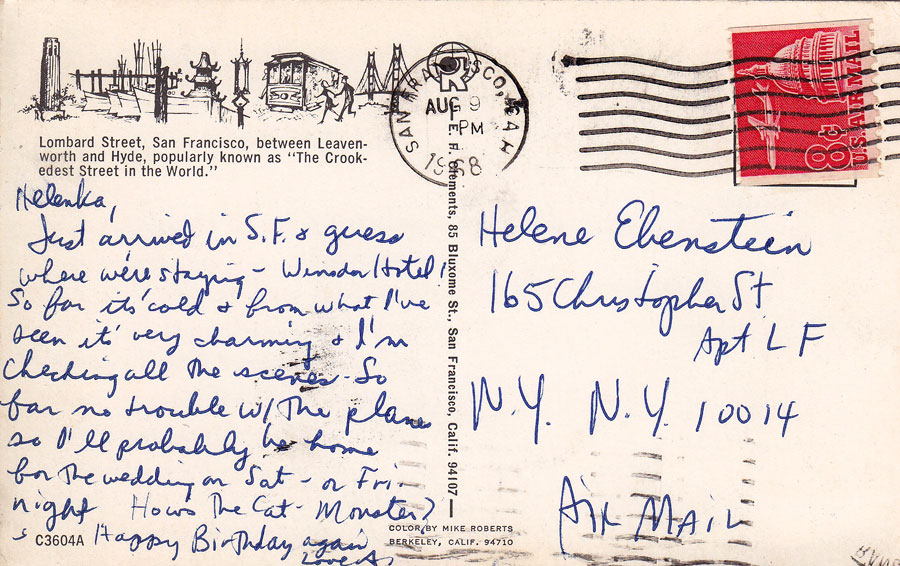 Lombard Street, San Francisco, between Leaven-
worth and Hyde, popularly known as "The Crook-
edest Street in the World."
Helenka,
Just arrived in S.F. & guess
where we're staying - Winsdor Hotel!
So far its' cold & from what I've
seen it's very charming & I'm
checking all the scenes. So
far no trouble w/ the plane
so I'll probably be home
for the wedding on Sat - or Fri.
night Hows The Cat-Monster?
Happy Birthday again
Love
C3604A
SAN FRANCISCO, CA
AUG 9
PM
1968
R
E. F. Clements, 85 Bluxome St., San Francisco, Calif. 94107
COLOR BY MIKE ROBERTS
BERKELEY, CALIF. 94710
8¢
U.S. AIR MAIL
Helene Ebenstein
165 Christopher St
Apt L F
N.Y. N.Y. 10014
Air Mail